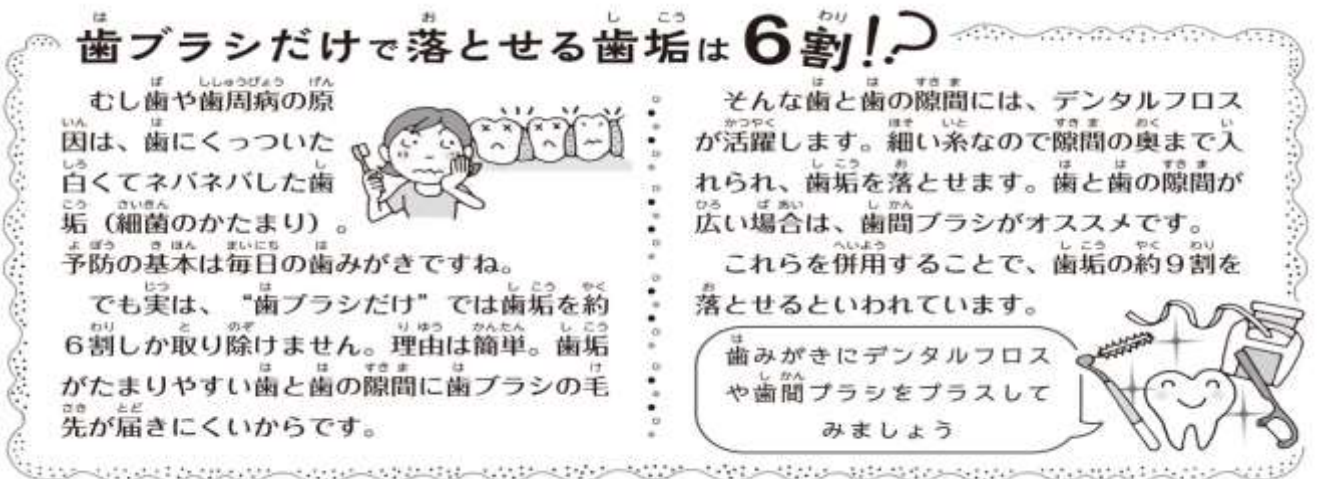 歯ブラシだけで落とせる歯垢は6割!?
むし歯や歯周病の原
因は、歯にくっついた
白くてネバネバした歯
垢（細菌のかたまり）。
予防の基本は毎日の歯みがきですね。
でも実は、“歯ブラシだけ”では歯垢を約
6割しか取り除けません。理由は簡単。歯垢
がたまりやすい歯と歯の隙間に歯ブラシの毛
先が届きにくいからです。
そんな歯と歯の隙間には、デンタルフロス
が活躍します。細い糸なので隙間の奥まで入
れられ、歯垢を落とせます。歯と歯の隙間が
広い場合は、歯間ブラシがオススメです。
これらを併用することで、歯垢の約9割を
落とせるといわれています。
歯みがきにデンタルフロス
や歯間ブラシをプラスして
みましょう